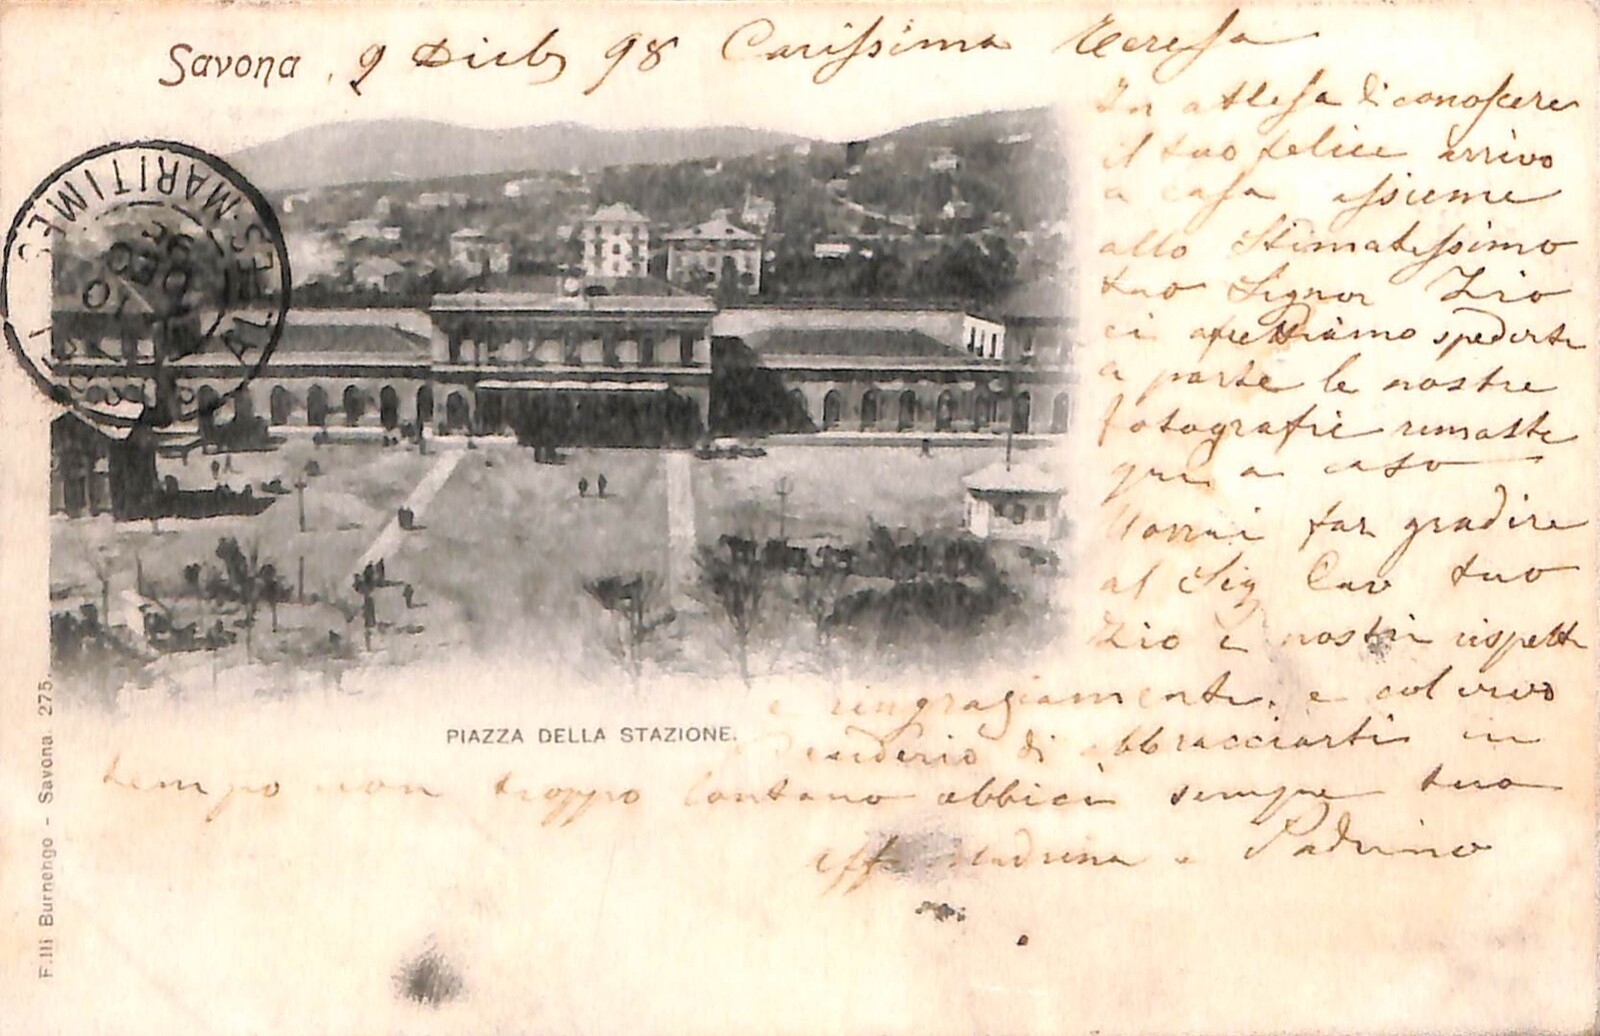 Savona, 9 Dicbe 98 Carissima Teresa
In attesa di conoscere
il tuo felice arrivo
a casa assieme
allo Stimatissimo
tuo Signor Zio
ci affrettiamo spedirti
a parte le nostre
fotografie rimaste
qui a caso
Vorrai far gradire
al Sig Cav tuo
Zio i nostri rispetti
e ringraziamenti, e col vivo
desiderio di abbracciarti in
tempo non troppo lontano abbici sempre tua
aff madrina e Padrino
PIAZZA DELLA STAZIONE.
F.lli Burnengo - Savona 275.
ALPES-MARITIMES
10
DEC